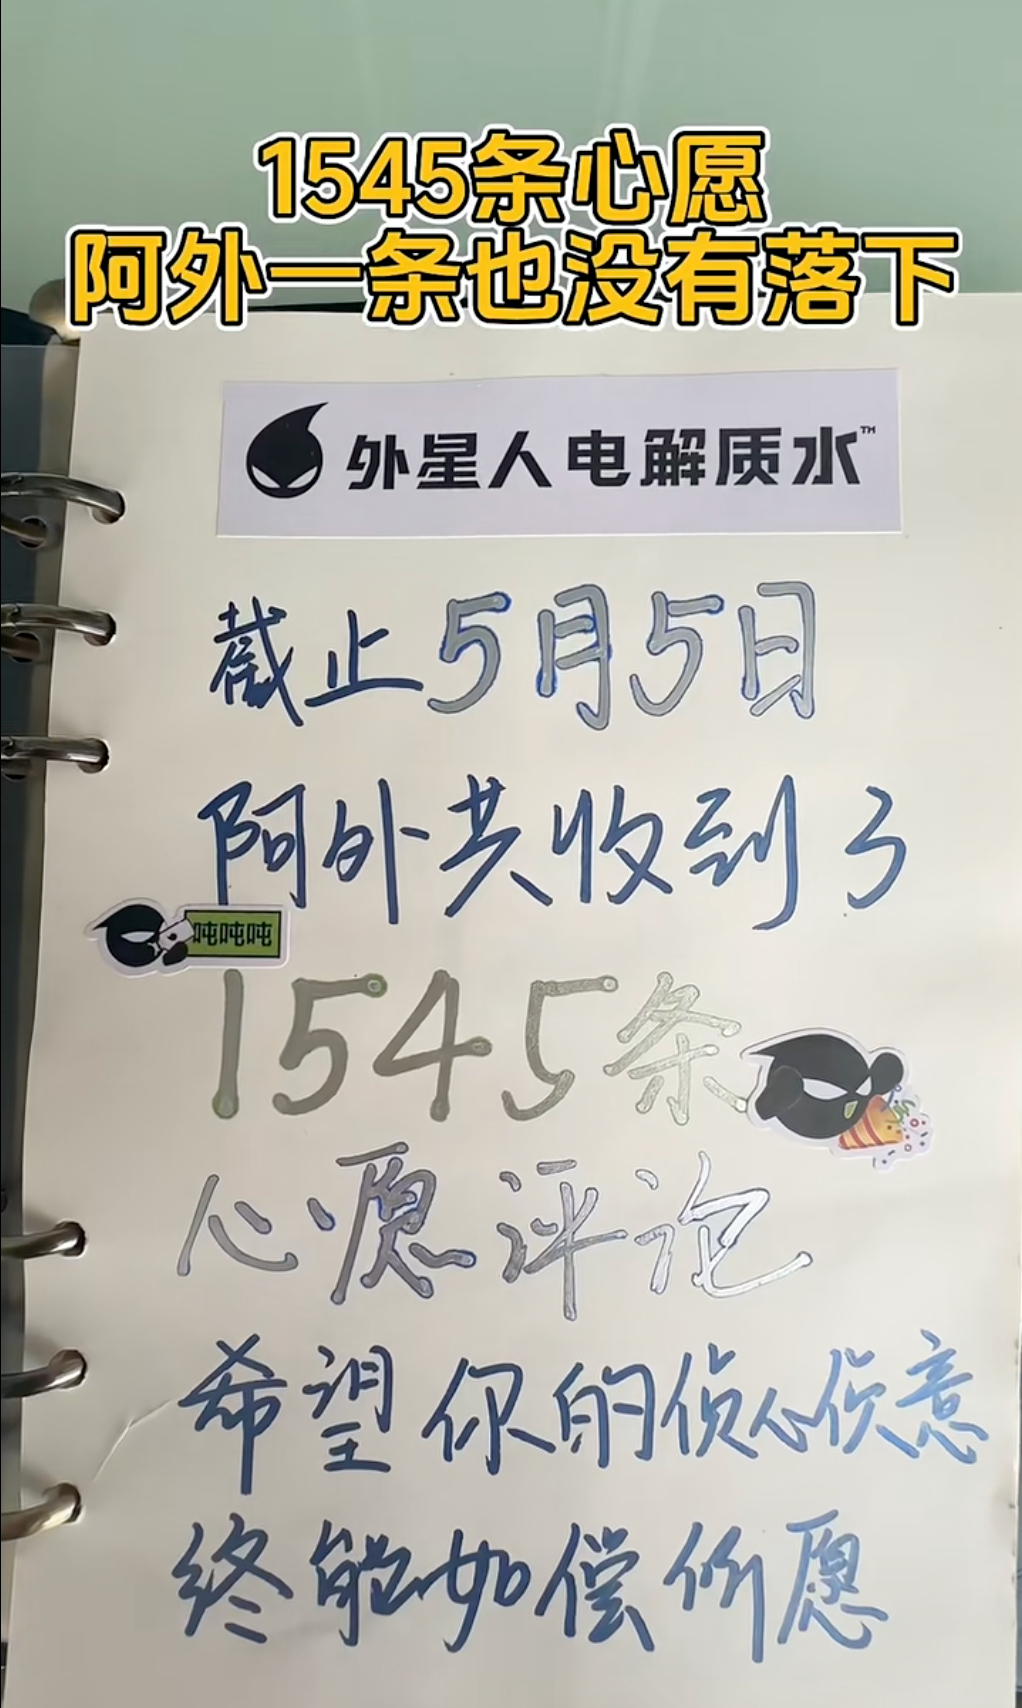 1545条心愿
阿外一条也没有落下
外星人电解质水™
截止5月5日
阿外共收到了
吨吨吨
1545条
心愿评论
希望你的侦心侦意
终能如偿所愿